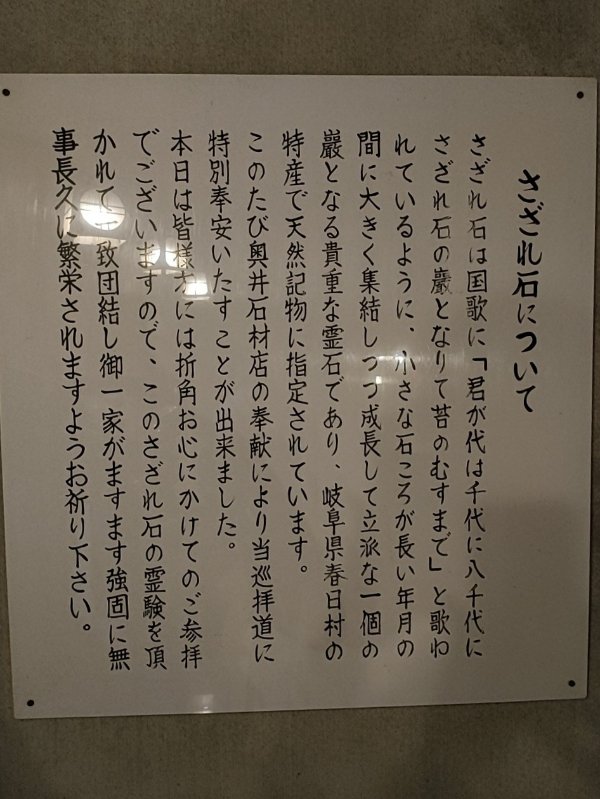 さざれ石について
さざれ石は国歌に「君が代は千代に八千代に
さざれ石の巌となりて苔のむすまで」と歌わ
れているように、小さな石ころが長い年月の
間に大きく集結しつつ成長して立派な一個の
巌となる貴重な霊石であり、岐阜県春日村の
特産で天然記物に指定されています。
このたび奥井石材店の奉献により当巡拝道に
特別奉安いたすことが出来ました。
本日は皆様方には折角お心にかけてのご参拝
でございますので、このさざれ石の霊験を頂
かれて一致団結し御一家がますます強固に無
事長久に繁栄されますようお祈り下さい。